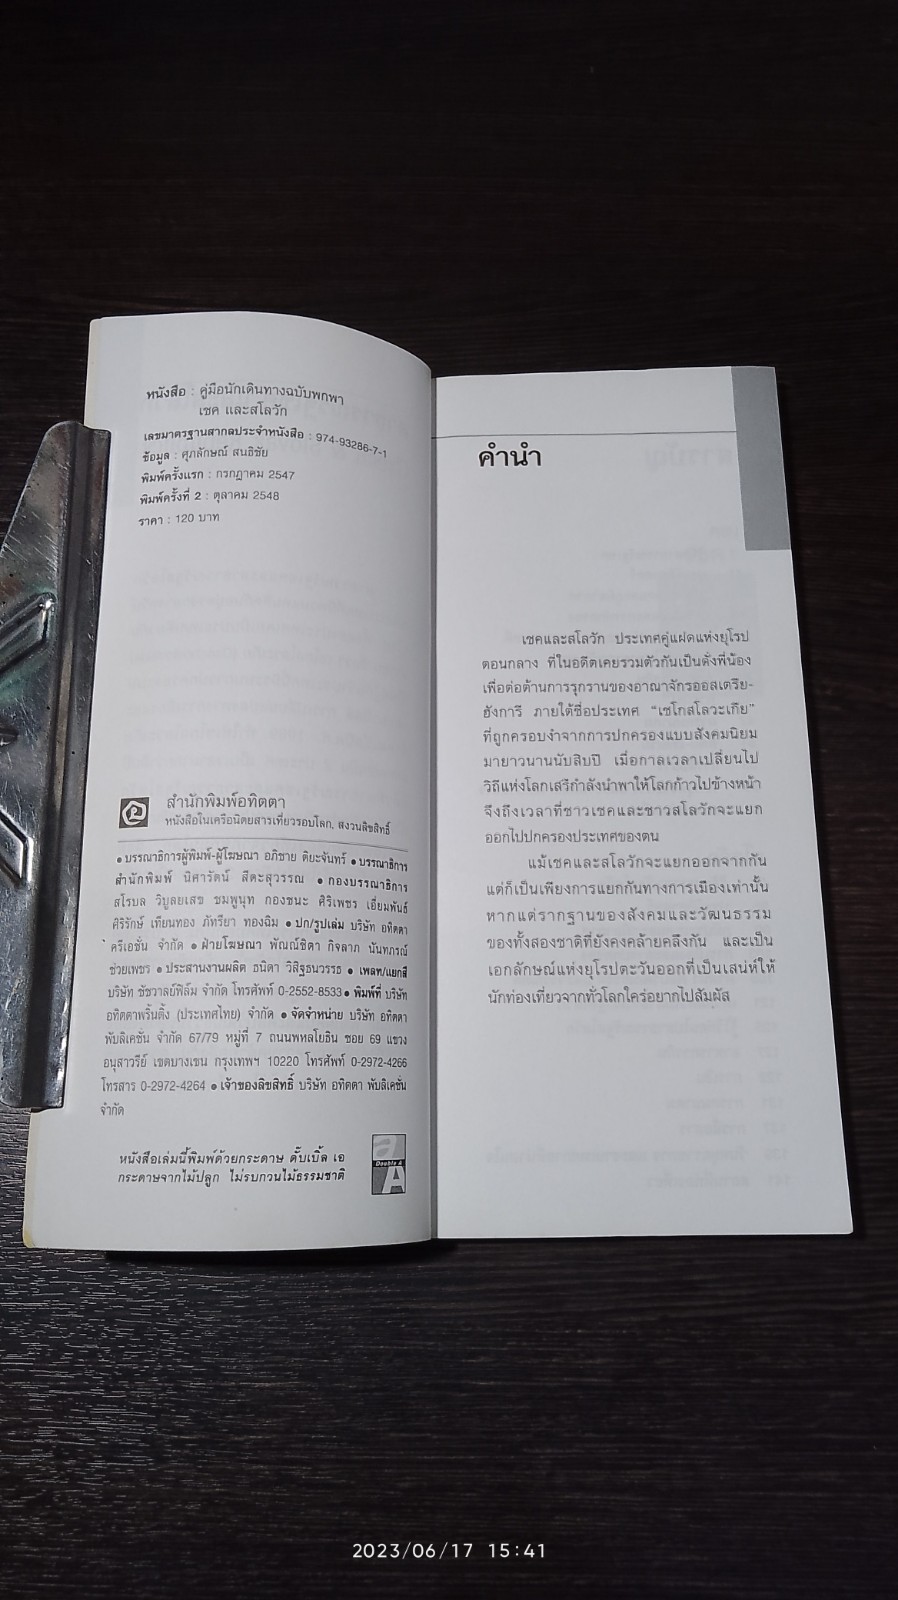 หนังสือ : คู่มือนักเดินทางฉบับพกพา
เชค และสโลวัก
เลขมาตรฐานสากลประจำหนังสือ : 974-93286-7-1
ข้อมูล : ศุภลักษณ์ สนธิชัย
พิมพ์ครั้งแรก : กรกฎาคม 2547
พิมพ์ครั้งที่ 2 : ตุลาคม 2548
ราคา : 120 บาท
สำนักพิมพ์อทิตตา
หนังสือในเครือนิตยสารเที่ยวรอบโลก, สงวนลิขสิทธิ์
• บรรณาธิการผู้พิมพ์-ผู้โฆษณา อภิชาย ติยะจันทร์ • บรรณาธิการ
สำนักพิมพ์ นิศารัตน์ สีตะสุวรรณ • กองบรรณาธิการ
สโรบล วิบูลยเสข ชมพูนุท กองชนะ ศิริเพชร เอี่ยมพันธ์
ศิริรักษ์ เทียนทอง ภัทรียา ทองฉิม • ปก/รูปเล่ม บริษัท อทิตตา
ครีเอชั่น จำกัด • ฝ่ายโฆษณา พัณณ์ชิตา กิจลาภ นันทภรณ์
ช่วยเพชร • ประสานงานผลิต ธนิดา วิสิฐธนวรรธ • เพลท/แยกสี
บริษัท ชัชวาลย์ฟิล์ม จำกัด โทรศัพท์ 0-2552-8533 • พิมพ์ที่ บริษัท
อทิตตาพริ้นติ้ง (ประเทศไทย) จำกัด • จัดจำหน่าย บริษัท อทิตตา
พับลิเคชั่น จำกัด 67/79 หมู่ที่ 7 ถนนพหลโยธิน ซอย 69 แขวง
อนุสาวรีย์ เขตบางเขน กรุงเทพฯ 10220 โทรศัพท์ 0-2972-4266
โทรสาร 0-2972-4264 • เจ้าของลิขสิทธิ์ บริษัท อทิตตา พับลิเคชั่น
จำกัด
หนังสือเล่มนี้พิมพ์ด้วยกระดาษ ดั๊บเบิ้ล เอ
กระดาษจากไม้ปลูก ไม่รบกวนไม้ธรรมชาติ
Double A
A
คำนำ
เชคและสโลวัก ประเทศคู่แฝดแห่งยุโรป
ตอนกลาง ที่ในอดีตเคยรวมตัวกันเป็นดั่งพี่น้อง
เพื่อต่อต้านการรุกรานของอาณาจักรออสเตรีย-
ฮังการี ภายใต้ชื่อประเทศ “เชโกสโลวะเกีย”
ที่ถูกครอบงำจากการปกครองแบบสังคมนิยม
มายาวนานนับสิบปี เมื่อกาลเวลาเปลี่ยนไป
วิถีแห่งโลกเสรีกำลังนำพาให้โลกก้าวไปข้างหน้า
จึงถึงเวลาที่ชาวเชคและชาวสโลวักจะแยก
ออกไปปกครองประเทศของตน
แม้เชคและสโลวักจะแยกออกจากกัน
แต่ก็เป็นเพียงการแยกกันทางการเมืองเท่านั้น
หากแต่รากฐานของสังคมและวัฒนธรรม
ของทั้งสองชาติที่ยังคงคล้ายคลึงกัน และเป็น
เอกลักษณ์แห่งยุโรปตะวันออกที่เป็นเสน่ห์ให้
นักท่องเที่ยวจากทั่วโลกใคร่อยากไปสัมผัส
2023/06/17 15:41